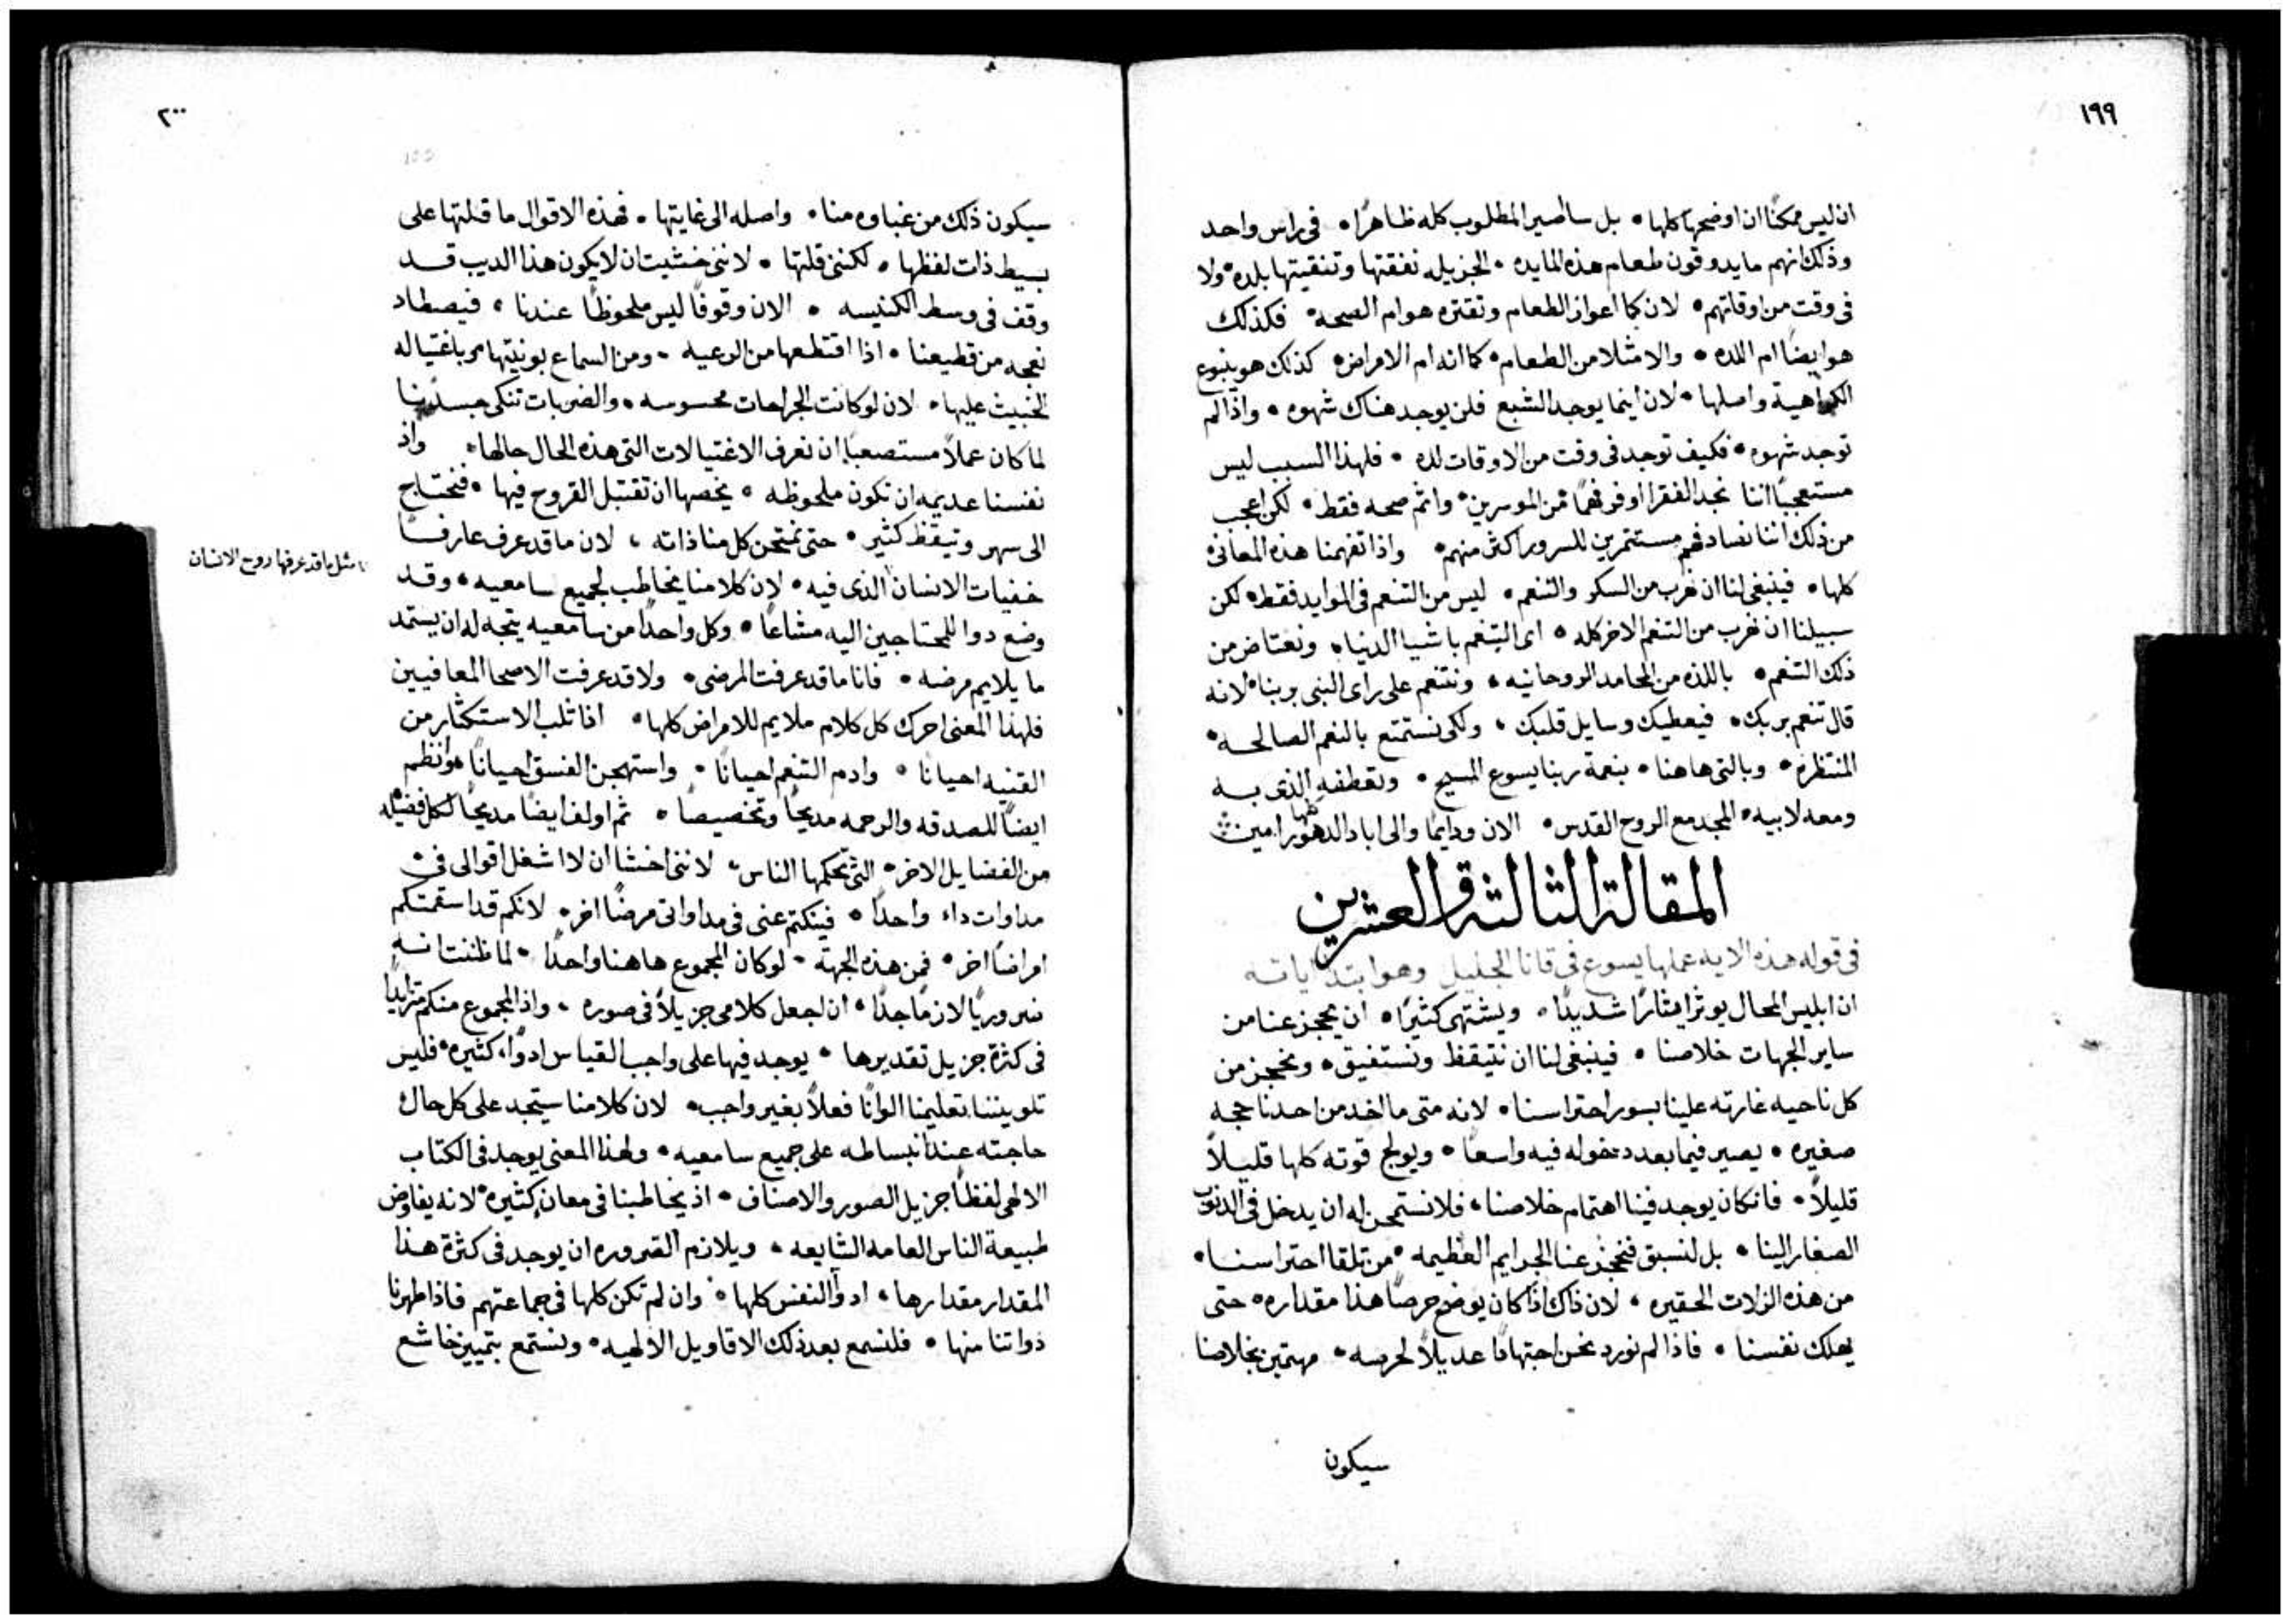 ١٩٩
ان ليس ممكنًا ان اوضحها كلها • بل ساصير المطلوب كله ظاهرًا • في راس واحد
وذلك انهم ما يدوقون طعام هذه المايده • الجزيله نفقتها وتنقيتها بلده • ولا
في وقت من اوقاتهم • لان كما اعواز الطعام وتقتره هو ام الصحه • فكذلك
هو ايضًا ام اللده • والامتلا من الطعام • كما انه ام الامراض • كذلك هو ينبوع
الكراهية واصلها • لان اينما يوجد الشبع فلن يوجد هناك شهوه • واذا لم
توجد شهوه • فكيف توجد في وقت من الاوقات لده • فلهذا السبب ليس
مستعجبًا اننا نجد الفقرا اوفر فهمًا من الموسرين • واتم صحه فقط • لكن اعجب
من ذلك اننا نصادفهم مستثمرين للسرور اكثر منهم • واذا تفهمنا هذه المعاني
كلها • فينبغي لنا ان نهرب من السكر والتنعم • ليس من التنعم في الموايد فقط • لكن
سبيلنا ان نهرب من التنعم الاخر كله • اى التنعم باشيا الدنيا • ونعتاض من
ذلك التنعم • باللذه من المحامد الروحانيه • ونتنعم على راى النبي بربنا • لانه
قال تنعم بربك • فيعطيك وسايل قلبك • ولكى نستمتع بالنعم الصالحه •
المنتظره • وبالتي هاهنا • بنعمة ربنا يسوع المسيح • وتعطفه الذى به
ومعه لابيه • المجد مع الروح القدس • الان ودايمًا والى اباد الدهور كلها امين
المقالة الثالثة والعشرين
في قوله هذه الايه عملها يسوع في قانا الجليل وهو ابتدا اياته
ان ابليس المحال يوثر ايثارًا شديدًا • ويشتهى كثيرًا • ان يحجز عنا من
ساير الجهات خلاصنا • فينبغي لنا ان نتيقظ ونستفيق • ونحجز من
كل ناحيه غارته علينا بسور احتراسنا • لانه متى ما اخد من احدنا حجه
صغيره • يصير فيما بعد دخوله فيه واسعًا • ويولج قوته كلها قليلاً
قليلاً • فان كان يوجد فينا اهتمام خلاصنا • فلا نستمحن له ان يدخل في الدنوب
الصغار الينا • بل لنسبق فنحجز عنا الجرايم العظيمه • من تلقا احتراسنا •
من هذه الزلات الحقيره • لان ذاك اذا كان يوضح حرصًا هذا مقداره • حتى
يهلك نفسنا • فاذا لم نورد نحن اجتهادًا عديلاً لحرصه • مهتمين بخلاصنا
سيكون
٢٠٠
سيكون ذلك من غباوه منا • واصله الى غايتها • فهذه الاقوال ما قلتها على
بسيط ذات لفظها • لكنني قلتها • لانني خشيت ان لا يكون هذا الديب قد
وقف في وسط الكنيسه • الان وقوفًا ليس ملحوظًا عندنا • فيصطاد
نعجه من قطيعنا • اذا اقتطعها من الرعيه • ومن السماع بونيتها وباغتياله
الخبيث عليها • لان لو كانت الجراحات محسوسه • والضربات تنكى جسدنا
لما كان عملاً مستصعبًا ان نعرف الاغتيالات التي هذه الحال حالها • واذ
نفسنا عديمه ان تكون ملحوظه • يخصها ان تقتبل القروح فيها • فنحتاج
الى سهر وتيقظ كثير • حتى يمتحن كل منا ذاته • لان ما قد عرف عارفًا
خفيات الانسان الذى فيه • لان كلامنا يخاطب لجميع سامعيه • وقد
مثل ما قد عرفها روح الانسان
وضع دوا للمحتاجين اليه مشاعًا • وكل واحدًا من سامعيه يتجه له ان يستمد
ما يلايم مرضه • فانا ما قد عرفت المرضى • ولا قد عرفت الاصحا المعافيين
فلهذا المعنى احرك كل كلام ملايم للامراض كلها • افاثلب الاستكثار من
القنيه احيانا • وادم التنعم احيانًا • واستهجن الفسق احيانًا • وانظم
ايضًا للصدقه والرحمه مديحًا وتخصيصًا • ثم اولف ايضًا مديحًا لكل فضيله
من الفضايل الاخر • التي يحكمها الناس • لانني اخشا ان لا اشغل اقوالى في
مداوات داء واحدًا • فينكتم عني في مداواتى مرضًا اخر • لانكم قد اسقمتكم
امراضًا اخر • فمن هذه الجهة • لو كان المجموع هاهنا واحدًا • لما ظننت انه
ضروريًا لازمًا جدًا • ان اجعل كلامى جزيلاً في صوره • واذ المجموع منكم متزايدًا
في كثرة جزيل تقديرها • يوجد فيها على واجب القياس ادوًا، كثيره • فليس
تلويننا تعليمنا الوانًا فعلاً بغير واجب • لان كلامنا سيتجد على كل حال
حاجته عند انبساطه على جميع سامعيه • ولهذا المعنى يوجد في الكتاب
الالهى لفظًا جزيل الصور والاصناف • اذ يخاطبنا في معان كثيره • لانه يفاوض
طبيعة الناس العامه الشايعه • ويلازم الضروره ان يوجد في كثرة هذا
المقدار مقدارها • ادوآ النفس كلها • وان لم تكن كلها في جماعتهم فاذا طهرنا
ذواتنا منها • فلنسمع بعد ذلك الاقاويل الالهيه • ونستمع بتمييز خاشع